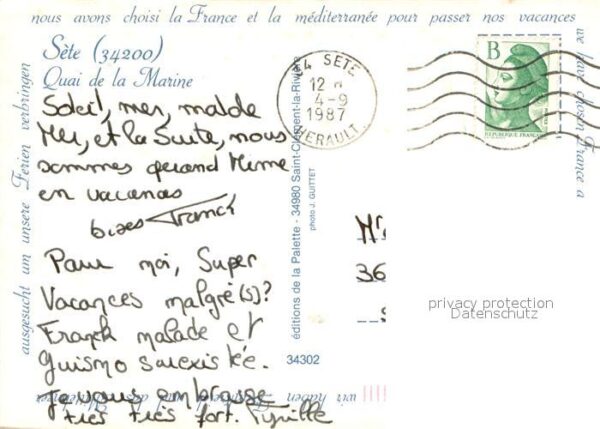 nous avons choisi la France et la méditerranée pour passer nos vacances
we have chosen France a
ausgesucht um unsere Ferien verbringen
wir haben
Sète (34200)
Quai de la Marine
Soleil, mer, mal de
Mer, et la Suite, nous
sommes quand Meme
en vacances
bises Franck
Pour moi, Super
Vacances malgré(s)?
Franck malade et
Guismo
Je vous embrasse
très très fort.
éditions de la Palette - 34980 Saint-Clément-la-Rivière
photo J. GUITTET
34302
34 SETE
12 H
4-9
1987
HERAULT
B
REPUBLIQUE FRANÇAISE
36
privacy protection
Datenschutz